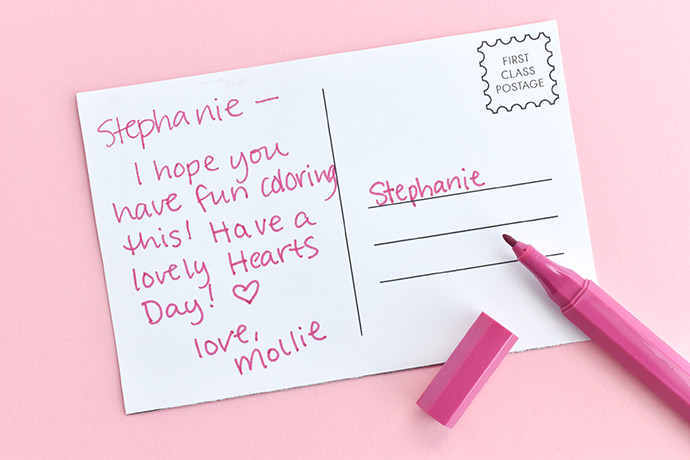 Stephanie —
I hope you
have fun coloring
this! Have a
lovely Hearts
Day! ♡
love,
Mollie
FIRST
CLASS
POSTAGE
Stephanie